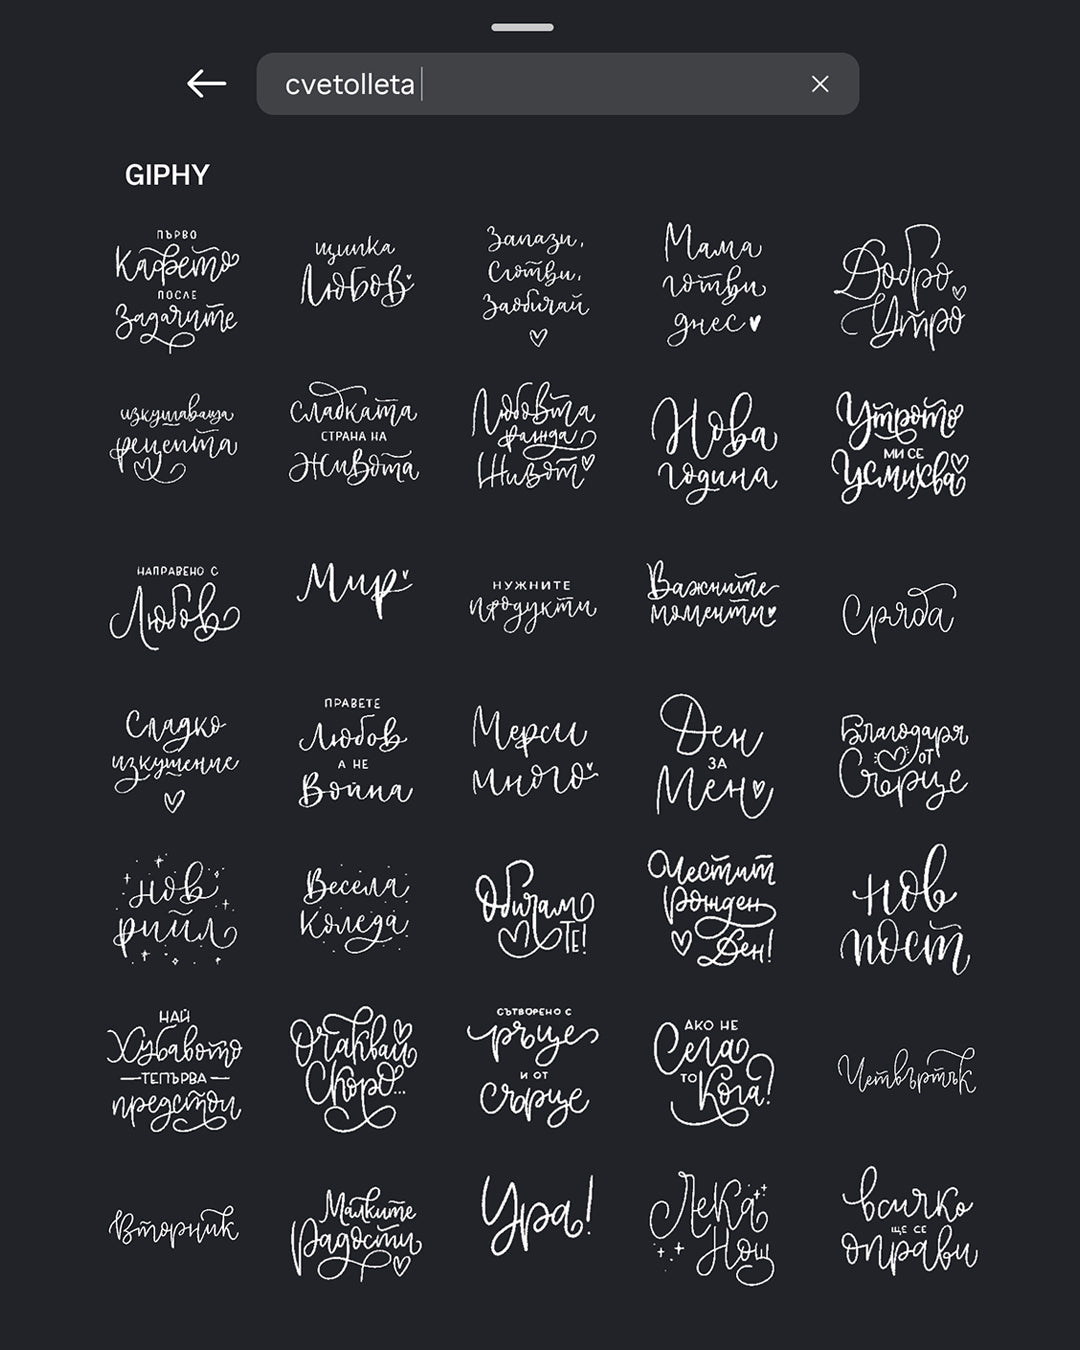 cvetolleta
GIPHY
ПЪРВО
Кафето
ПОСЛЕ
Задачите
щипка
Любов
Запази,
Сготви,
Заобичай
Мама
готви
днес
Добро
Утро
изкушаваща
рецепта
Сладката
СТРАНА НА
Живота
Любовта
ражда
Живот
Нова
година
Утрото
МИ СЕ
Усмихва
НАПРАВЕНО С
Любов
Мир
НУЖНИТЕ
продукти
Важните
моменти
Сряда
Сладко
изкушение
ПРАВЕТЕ
Любов
А НЕ
Война
Мерси
много
Ден
ЗА
Мен
Благодаря
ОТ
Сърце
нов
рийл
Весела
Коледа
Обичам
ТЕ!
Честит
Рожден
Ден!
нов
пост
НАЙ
Хубавото
ТЕПЪРВА
предстои
Очаквай
Скоро...
СЪТВОРЕНО С
ръце
И ОТ
сърце
АКО НЕ
Сега
ТО
Кога?
Четвъртък
Вторник
Малките
Радости
Ура!
Лека
Нощ
всичко
ЩЕ СЕ
оправи